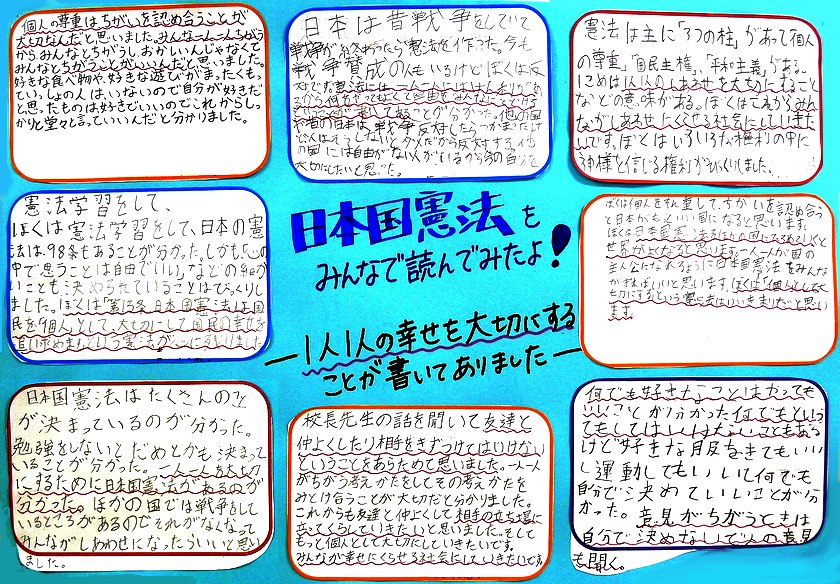 個人の尊重はちがいを認め合うことが
大切なんだと思いました。みんな一人一人ちがう
からみんなとちがうし、おかしいんじゃなくて
みんなとちがうことがいいんだと思いました。
好きな食べ物や、好きな遊びがまったくもって
いっしょの人はいないので自分が好きだ
と思ったものは好きでいいのでこれからしっ
かりと堂々と言っていいんだと分かりました。
日本は昔戦争をしていて
戦争が終わったら憲法を作った。今も
戦争賛成の人もいるけどぼくは反
対です。憲法には一人一人
ことが分かった。他の国
や昔の日本は、戦争反対したらつかまったけ
の国には自由がない人がいるから今の自分を
大切にしたいと思った。
憲法は主に「3つの柱」があって「個人
の尊重」、「国民主権」、「平和主義」がある。
1人1人のしあわせを大切にすること
などの意味がある。ぼくはこれからみん
ながしあわせにくらせる社会にしていきた
いです。ぼくはいろいろな権利の中に
神様を信じる権利がびっくりしました。
憲法学習をして、
ぼくは憲法学習をして、日本の憲
法は98条もあることが分かった。しかも「心の
中で思うことは自由でいい」などの細か
いことも決められていることはびっくりし
ました。ぼくは「第13条 日本国憲法は国
民を「個人」として、大切にして国民の幸せを
追い求めますという憲法が心に残りました
日本国憲法を
みんなで読んでみたよ!
―1人1人の幸せを大切にする
ことが書いてありました―
ぼくは個人をそん重して、ちがいを認め合う
と日本がもっといい国になると思います。
ぼくは日本国憲法をほかの国に
世界がよくなると思います。一人一人が国の
主人公になれるように日本国憲法をみんな
いいと思います。ぼくは「個人として大
切にするという憲法はいいきまりだと思い
ます。
日本国憲法はたくさんのこと
が決まっているのが分かった。
勉強をしないとだめとかも決まって
いることが分かった。一人一人を大切
にするために日本国憲法があるのが
分かった。ほかの国では戦争をして
いるところがあるのでそれがなくなって
みんながしあわせになったらいいと思い
ました。
校長先生の話を聞いて友達と
仲よくしたり相手をきずつけてはいけない
ということをあらためて思いました。一人一人
がちがう考えかたをしてその考えかたを
みとけ合うことが大切だと分かりました。
これからも友達と仲よくして相手の立ち場に
立ってくらしていきたいと思いました。そして
もっと個人として大切にしていきたいです。
みんなが幸せにくらせる社会にしていきたいです。
何でも好きなことはやっても
いいことが分かった何でもといっ
てもしてはいけないこともある
けど好きな服をきてもいい
し運動してもいいって何でも
自分で決めていいことが分
かった。意見がちがうときは
自分で決めないで人の意見
も聞く。